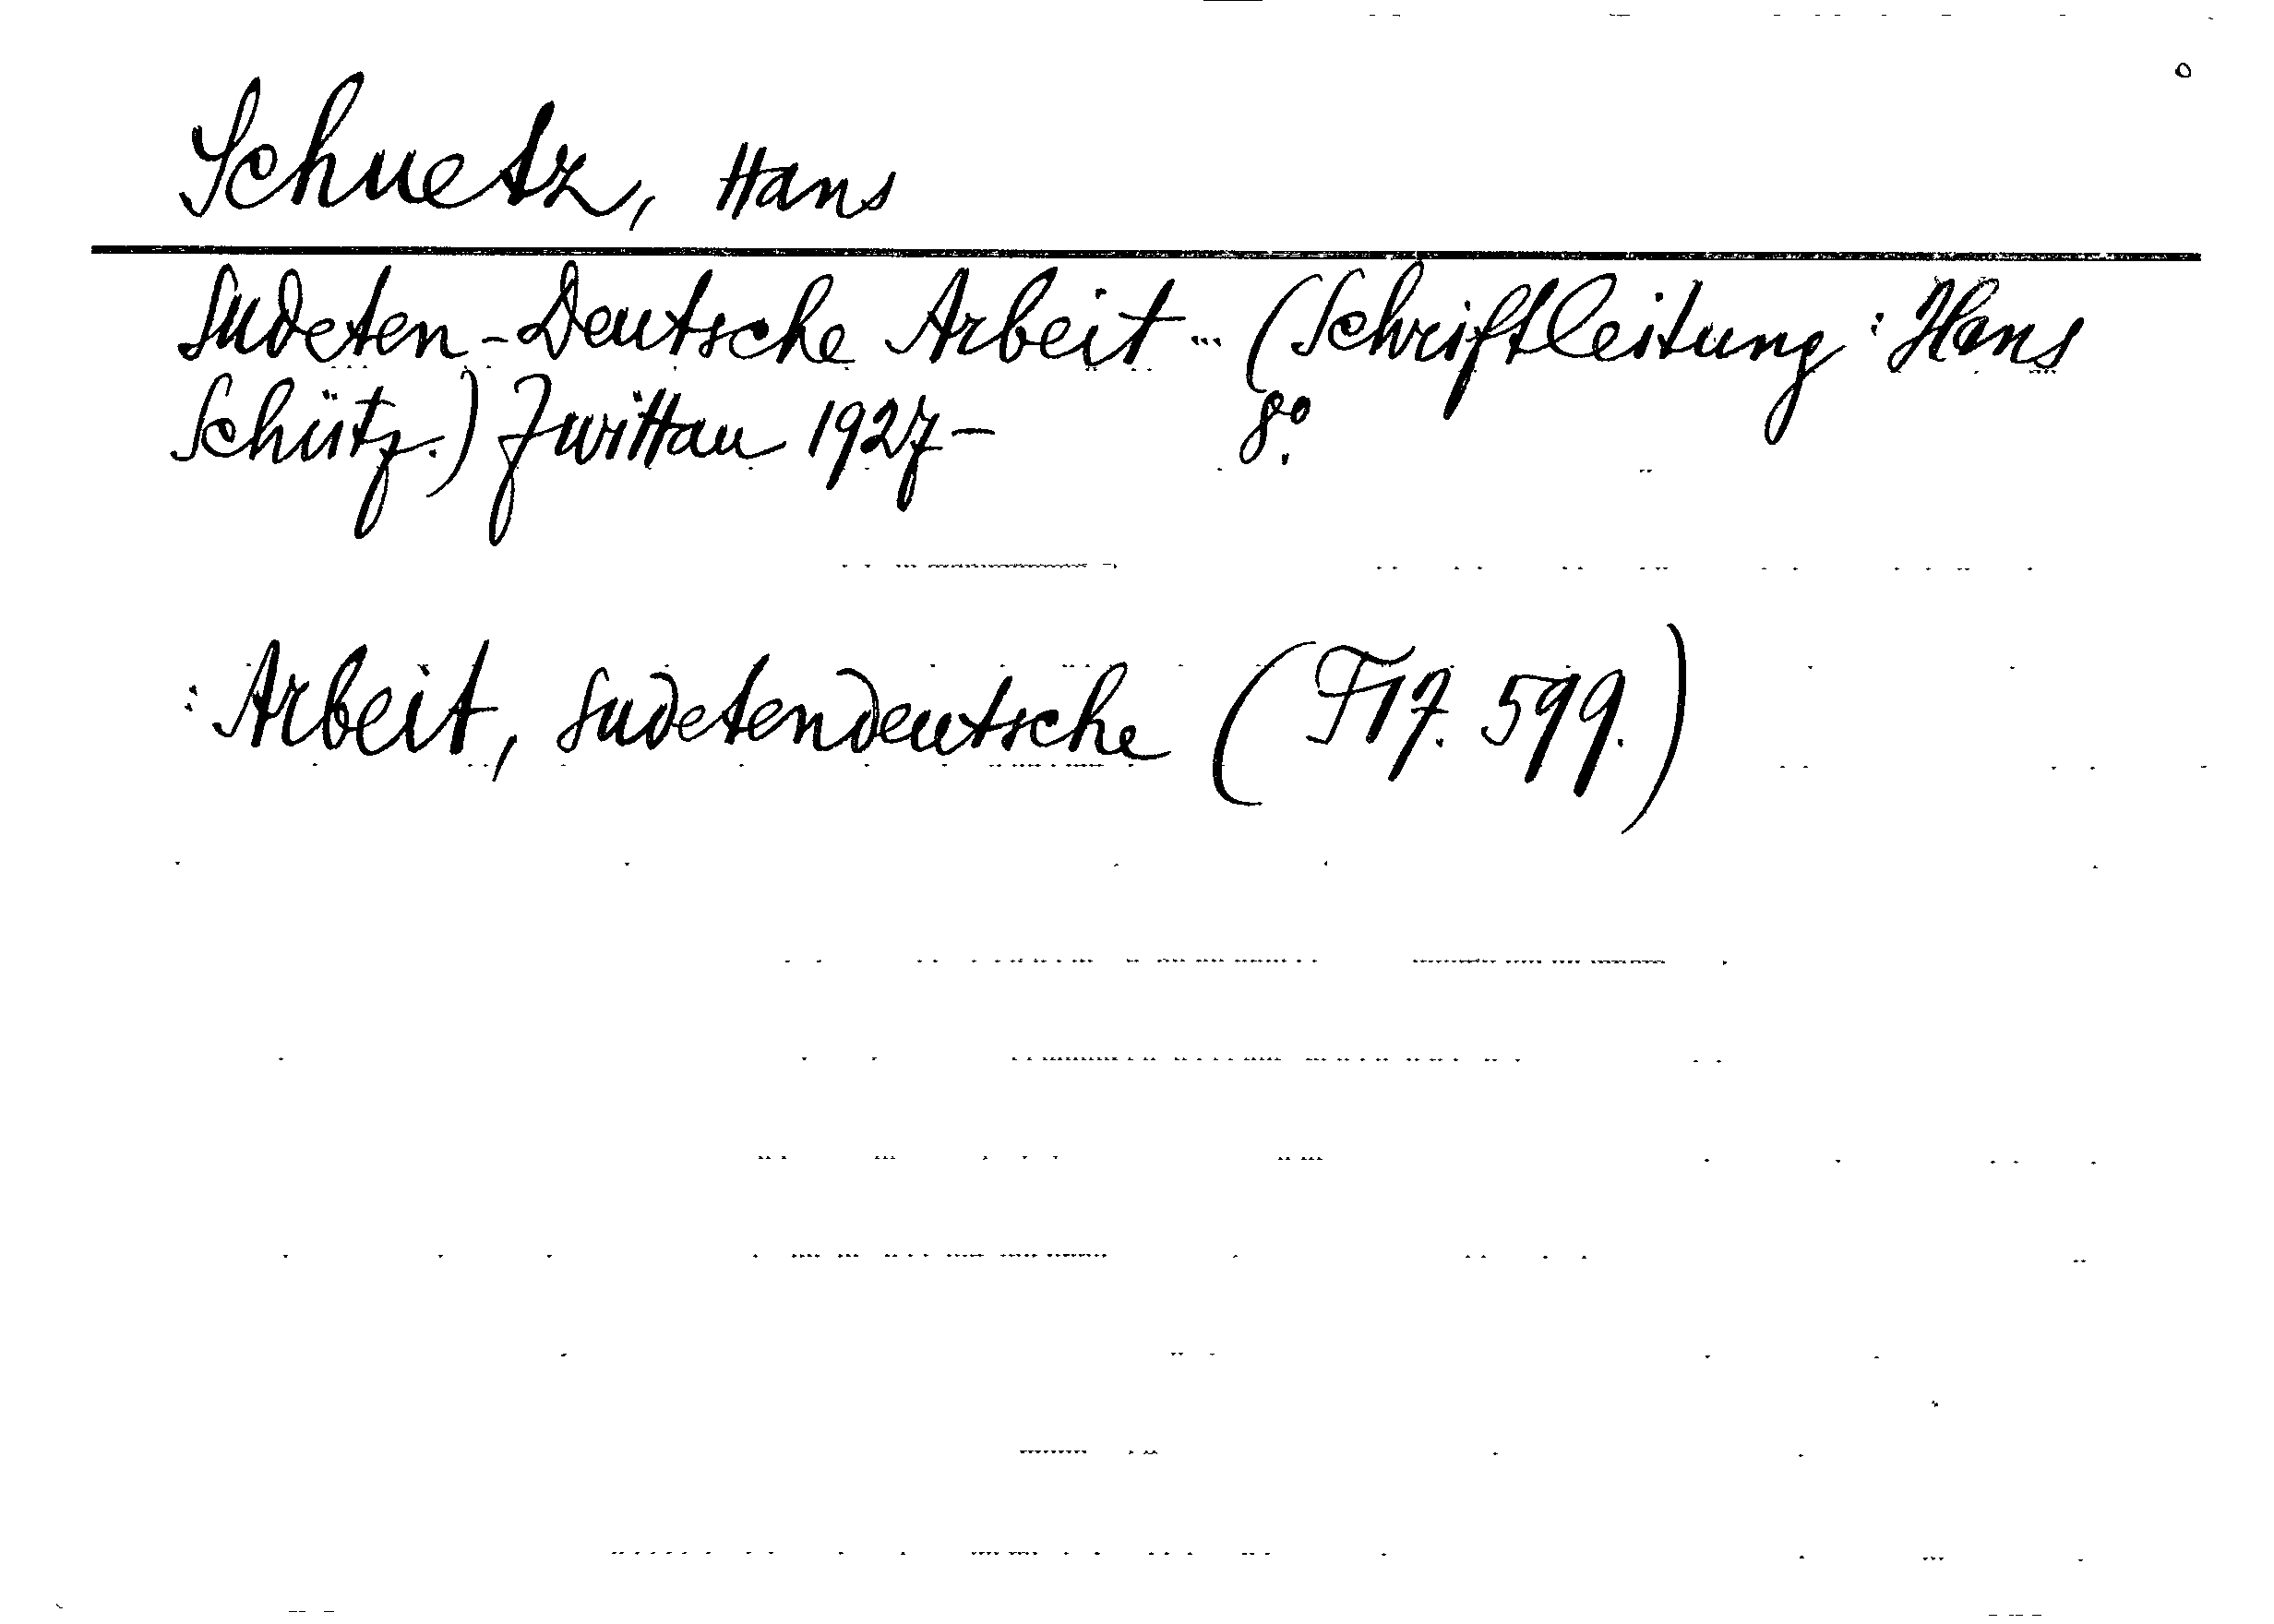 Schuetz, Hans
Sudeten-Deutsche Arbeit ... (Schriftleitung: Hans
Schütz.) Zwittau 1927- 8°.
: Arbeit, sudetendeutsche (F17. 599.)